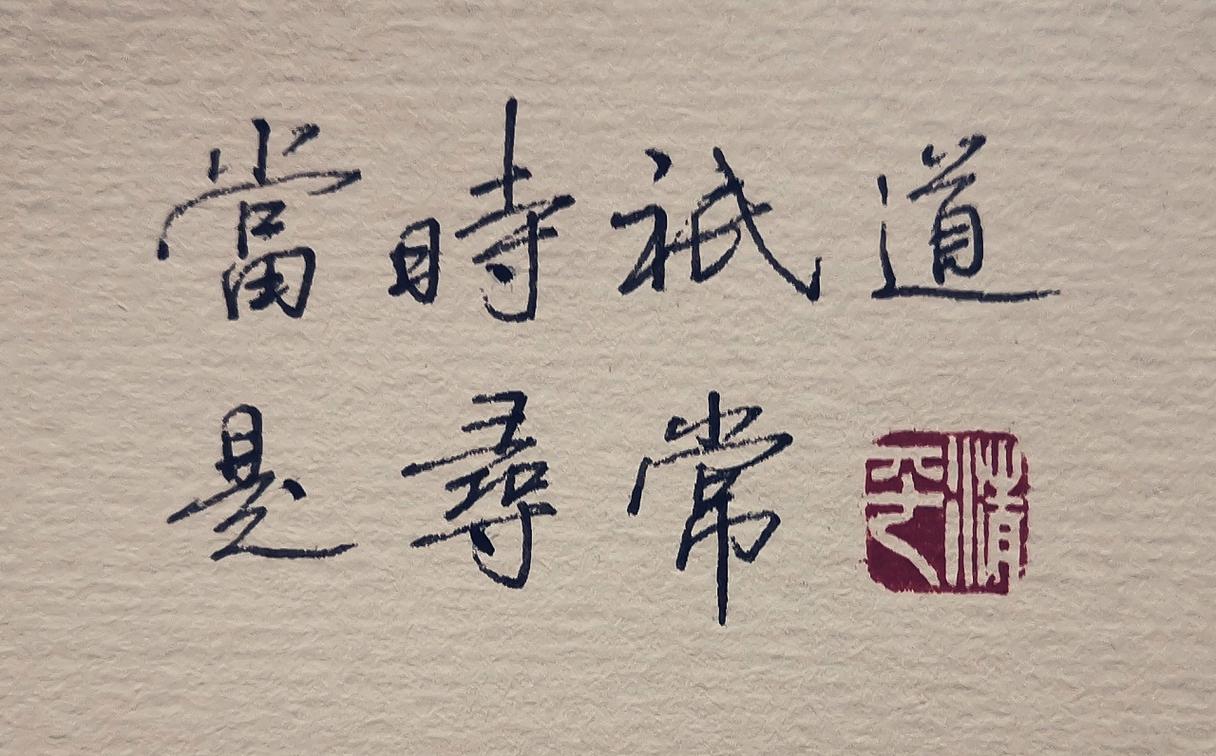 當時祇道
是尋常